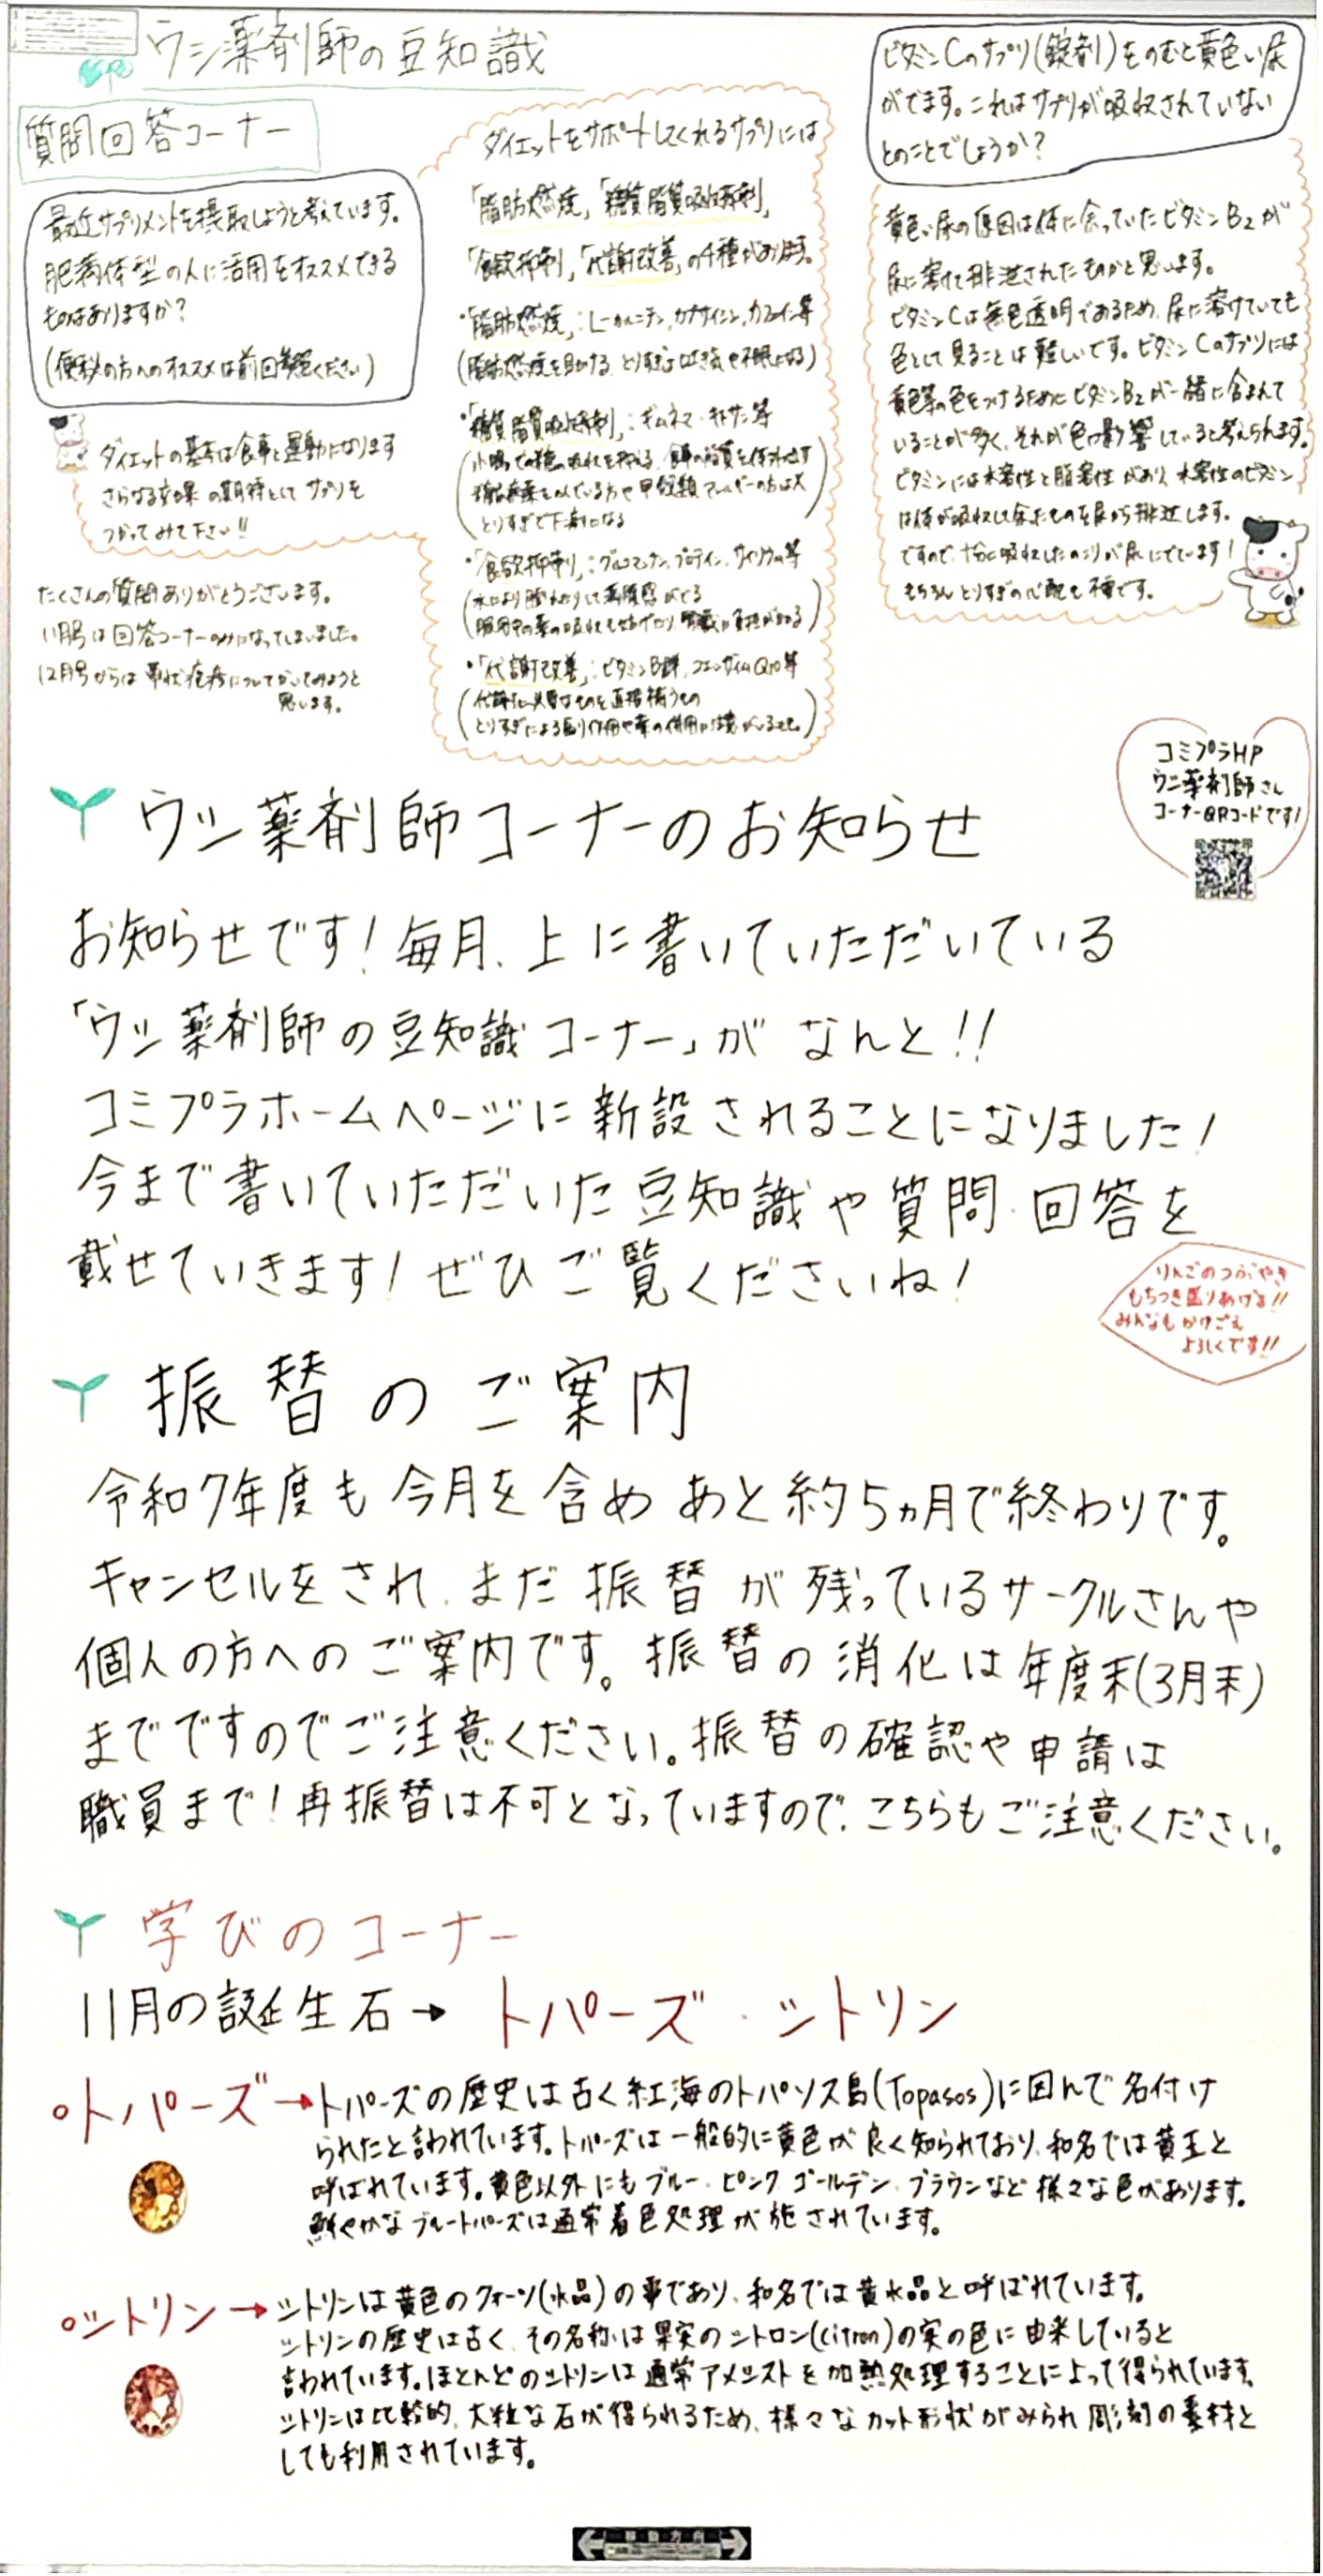 ウシ薬剤師の豆知識
質問回答コーナー
最近サプリメントを摂取しようと考えています。
肥満体型の人に活用をオススメできる
ものはありますか?
(便秘の方へのオススメは前回参照ください)
ダイエットの基本は食事と運動になります
さらなる効果の期待として サプリを
つかってみて下さい!!
たくさんの質問ありがとうございます。
11月号は回答コーナーのみになってしまいました。
12月号からは帯状疱疹についてかいてみようと
思います。
ダイエットをサポートしてくれるサプリには
「脂肪燃焼」「糖質脂質吸収抑制」
「食欲抑制」「代謝改善」の4種があります。
・「脂肪燃焼」:L-カルニチン、カプサイシン、カフェイン等
(脂肪燃焼を助ける とりすぎは吐き気や不眠になる)
・「糖質脂質吸収抑制」:ギムネマ・キトサン等
小腸での糖の吸収を抑える、食事の脂質を
とりすぎで下痢になる
・「食欲抑制」:グルコマンナン、プロテイン、サイリウム等
(水により膨らんだりして満腹感がでる
・「代謝改善」:ビタミンB群、コエンザイムQ10等
代謝に必要なものを直接補うもの
ビタミンCのサプリ(錠剤)をのむと黄色い尿
がでます。これはサプリが吸収されていない
とのことでしょうか?
黄色い尿の原因は体に余っていたビタミンB2が
尿に溶けて排泄されたものかと思います。
ビタミンCは無色透明であるため、尿に溶けていても
色として見ることは難しいです。ビタミンCのサプリには
黄色等の色をつけるためにビタミンB2が一緒に含まれて
いることが多く、それが色に影響していると考えられます。
ビタミンには水溶性と脂溶性があり、水溶性のビタミン
は体が吸収して余ったものを尿から排泄します。
ですので、十分に吸収したのこりが尿にでています!
もちろんとりすぎの心配も不要です。
コミプラHP
ウシ薬剤師さん
コーナーQRコードです!
ウシ薬剤師コーナーのお知らせ
お知らせです!毎月、上に書いていただいている
「ウシ薬剤師の豆知識コーナー」が なんと!!
コミプラホームページに新設されることになりました!
今まで書いていただいた豆知識や質問・回答を
載せていきます!ぜひご覧くださいね!
りんごのつぶやき
もちつき盛りあげる!!
みんなもかけごえ
よろしくです!!
振替のご案内
令和7年度も今月を含めあと約5ヵ月で終わりです。
キャンセルをされ、まだ振替が残っているサークルさんや
個人の方へのご案内です。振替の消化は年度末(3月末)
までですのでご注意ください。振替の確認や申請は
職員まで!再振替は不可となっていますので、こちらもご注意ください。
学びのコーナー
11月の誕生石→ トパーズ・シトリン
○トパーズ→トパーズの歴史は古く紅海のトパソス島(Topasos)に因んで名付け
られたと言われています。トパーズは一般的に黄色が良く知られており、和名では黄玉と
呼ばれています。黄色以外にもブルー、ピンク、ゴールデン、ブラウンなど様々な色があります。
鮮やかなブルートパーズは通常着色処理が施されています。
○シトリン→シトリンは黄色のクォーツ(水晶)の事であり、和名では黄水晶と呼ばれています。
シトリンの歴史は古く、その名称は果実のシトロン(citron)の実の色に由来していると
言われています。ほとんどのシトリンは通常アメシストを加熱処理することによって得られています。
シトリンは比較的、大粒な石が得られるため、様々なカット形状がみられ彫刻の素材と
しても利用されています。
移動方向